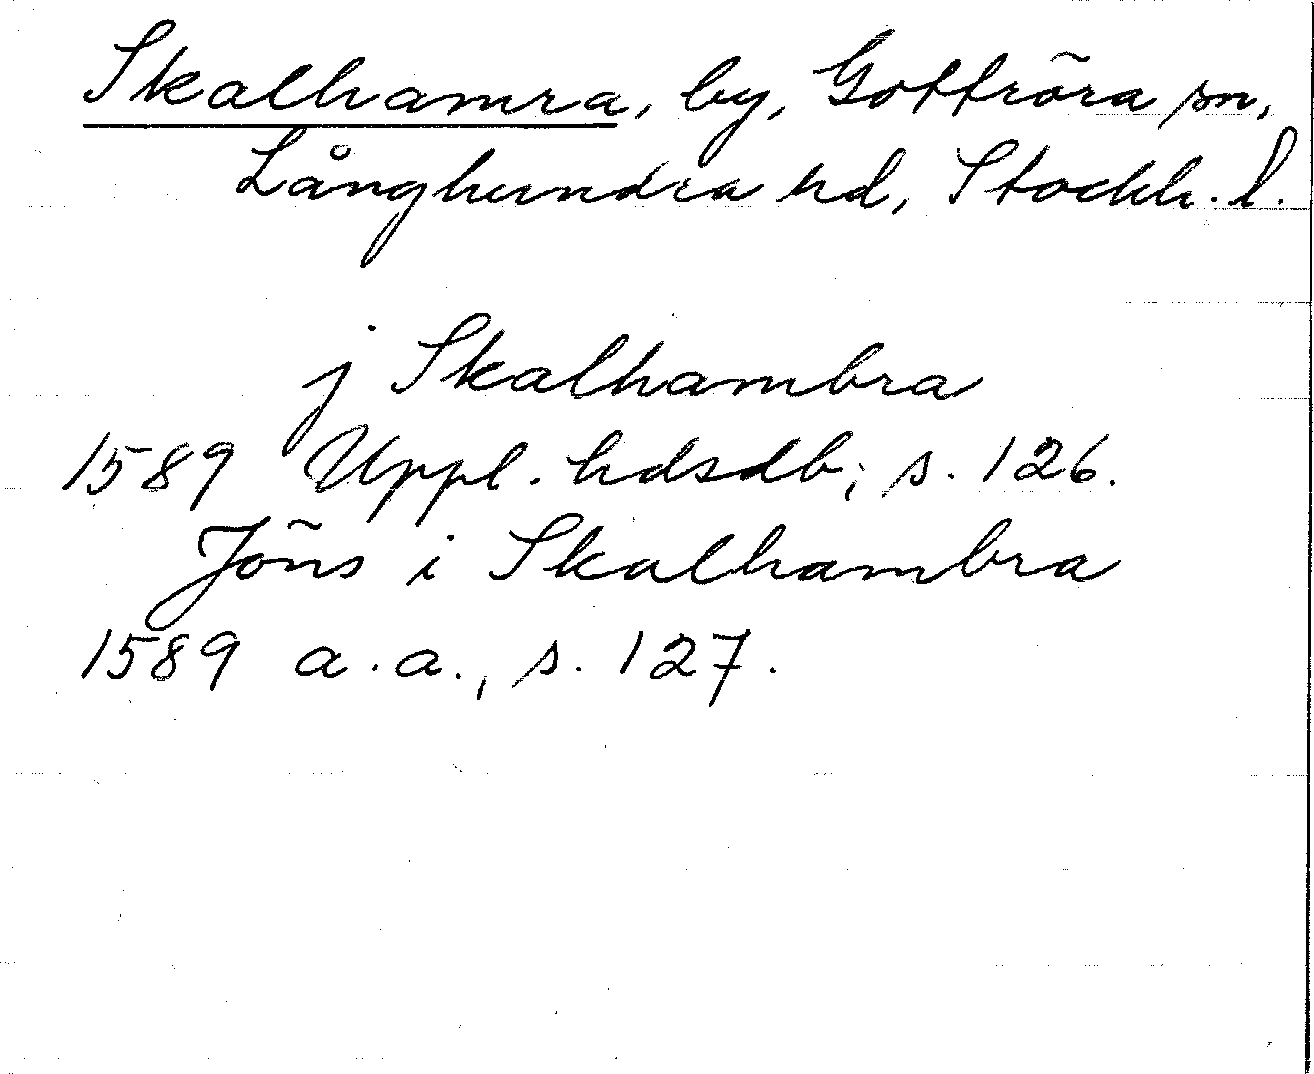 Skalhamra, by, Gottröra sn,
Långhundra hd, Stockh. l.
j Skalhambra
1589 Uppl. hdsdb; s. 126.
Jöns i Skalhambra
1589 a.a., s. 127.